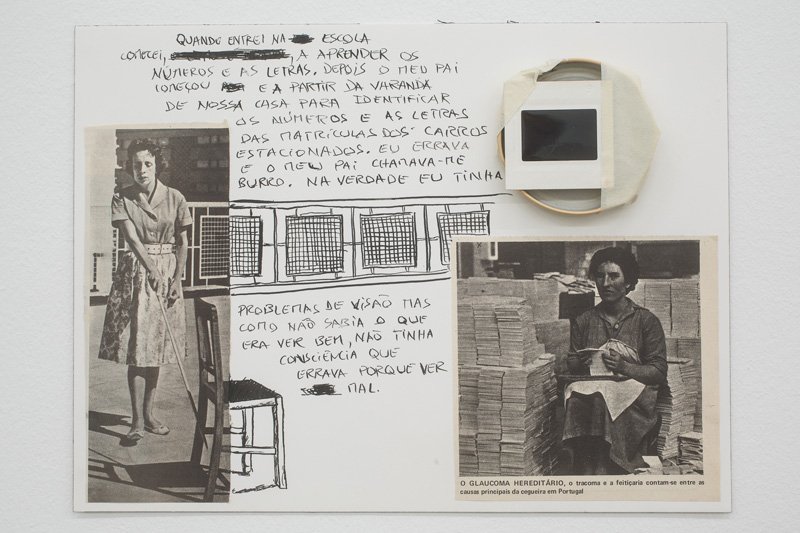 QUANDO ENTREI NA ESCOLA
COMECEI, A APRENDER OS
NÚMEROS E AS LETRAS. DEPOIS O MEU PAI
COMEÇOU E A PARTIR DA VARANDA
DE NOSSA CASA PARA IDENTIFICAR
OS NÚMEROS E AS LETRAS
DAS MATRICULAS DOS CARROS
ESTACIONADOS. EU ERRAVA
E O MEU PAI CHAMAVA-ME
BURRO. NA VERDADE EU TINHA
PROBLEMAS DE VISÃO MAS
COMO NÃO SABIA O QUE
ERA VER BEM, NÃO TINHA
CONSCIÊNCIA QUE
ERRAVA PORQUE VER
MAL.
O GLAUCOMA HEREDITÁRIO, o tracoma e a feitiçaria contam-se entre as
causas principais da cegueira em Portugal